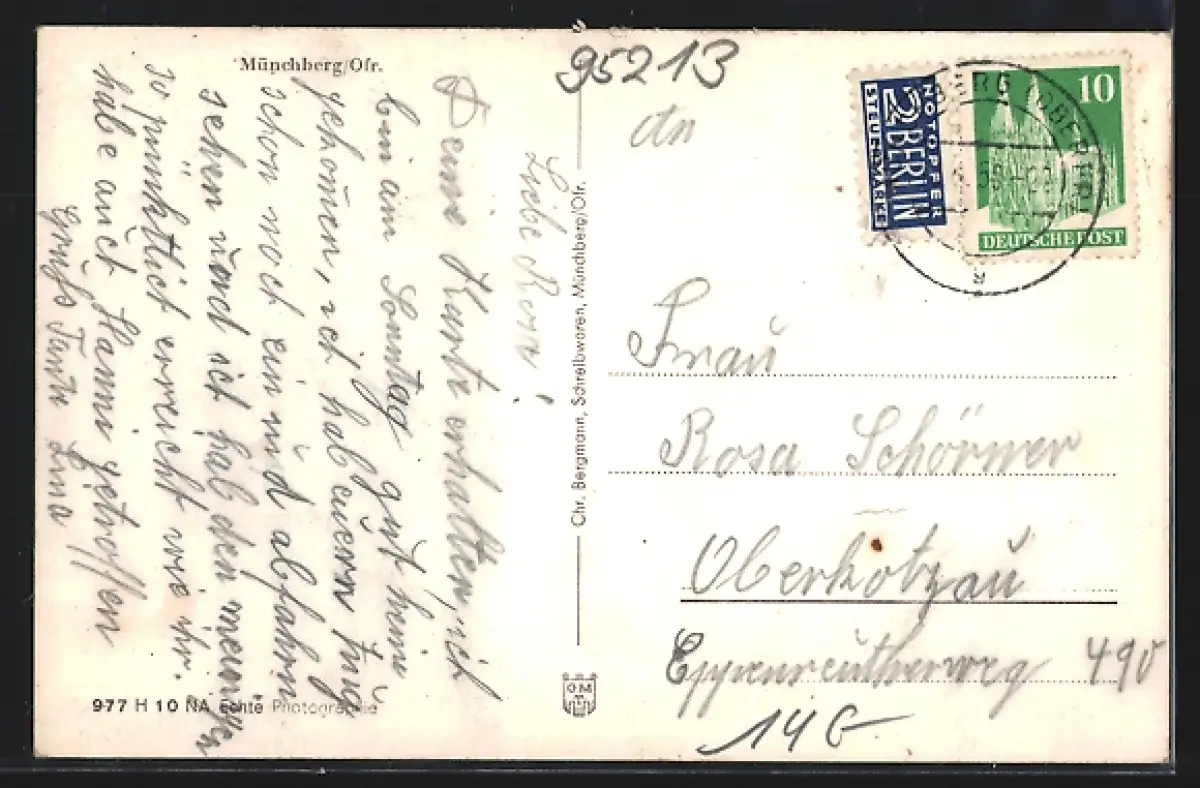 Münchberg/Ofr.
95213
An
Liebe Rosa!
Deine Karte erhalten, ich
bin am Sonntag gut heim
gekomen, ich hab euern Zug
schon noch ein und abfahrn
sehn und ich hab den meinigen
so pünktlich erreicht wie ihr.
habe auch Hanni getroffen
Gruß Tante Lina
Chr. Bergmann, Schreibwaren, Münchberg/Ofr.
NOTOPFER
2 BERLIN
STEUERMARKE
10
DEUTSCHE POST
Frau
Rosa Schörner
Oberkotzau
Eppenreutherweg 490
14 G
977 H 10 NA Echte Photographie
OM